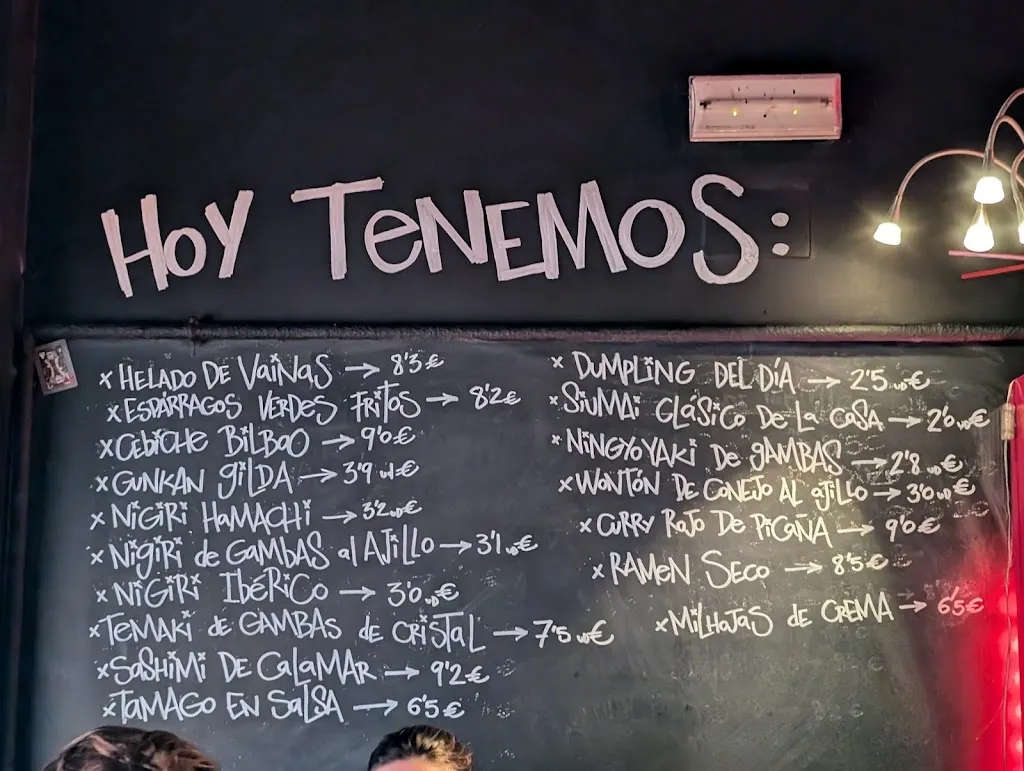 HOY TENEMOS:
x HELADO DE VAINAS → 8'3€
x ESPÁRRAGOS VERDES FRITOS → 8'2€
x CEBICHE BILBAO → 9'0€
x GUNKAN GILDA → 3'9 ud€
x NIGIRI HAMACHI → 3'2 ud€
x NIGIRI de GAMBAS al AJILLO → 3'1 ud€
x NIGIRI IBÉRICO → 3'0 ud€
x TEMAKI de GAMBAS de CRISTAL → 7'5 ud€
x SASHIMI DE CALAMAR → 9'2€
x TAMAGO EN SALSA → 6'5€
x DUMPLING DEL DÍA → 2'5 ud€
x SIUMAI CLÁSICO DE LA CASA → 2'0 ud€
x NINGYOYAKI De gAMBAS → 2'8 ud€
x WONTÓN DE CONEJO AL AJILLO → 3'0 ud€
x CURRY ROJO DE PICAÑA → 9'0€
x RAMEN SECO → 8'5€
x MILHOJAS de CREMA → 6'5€